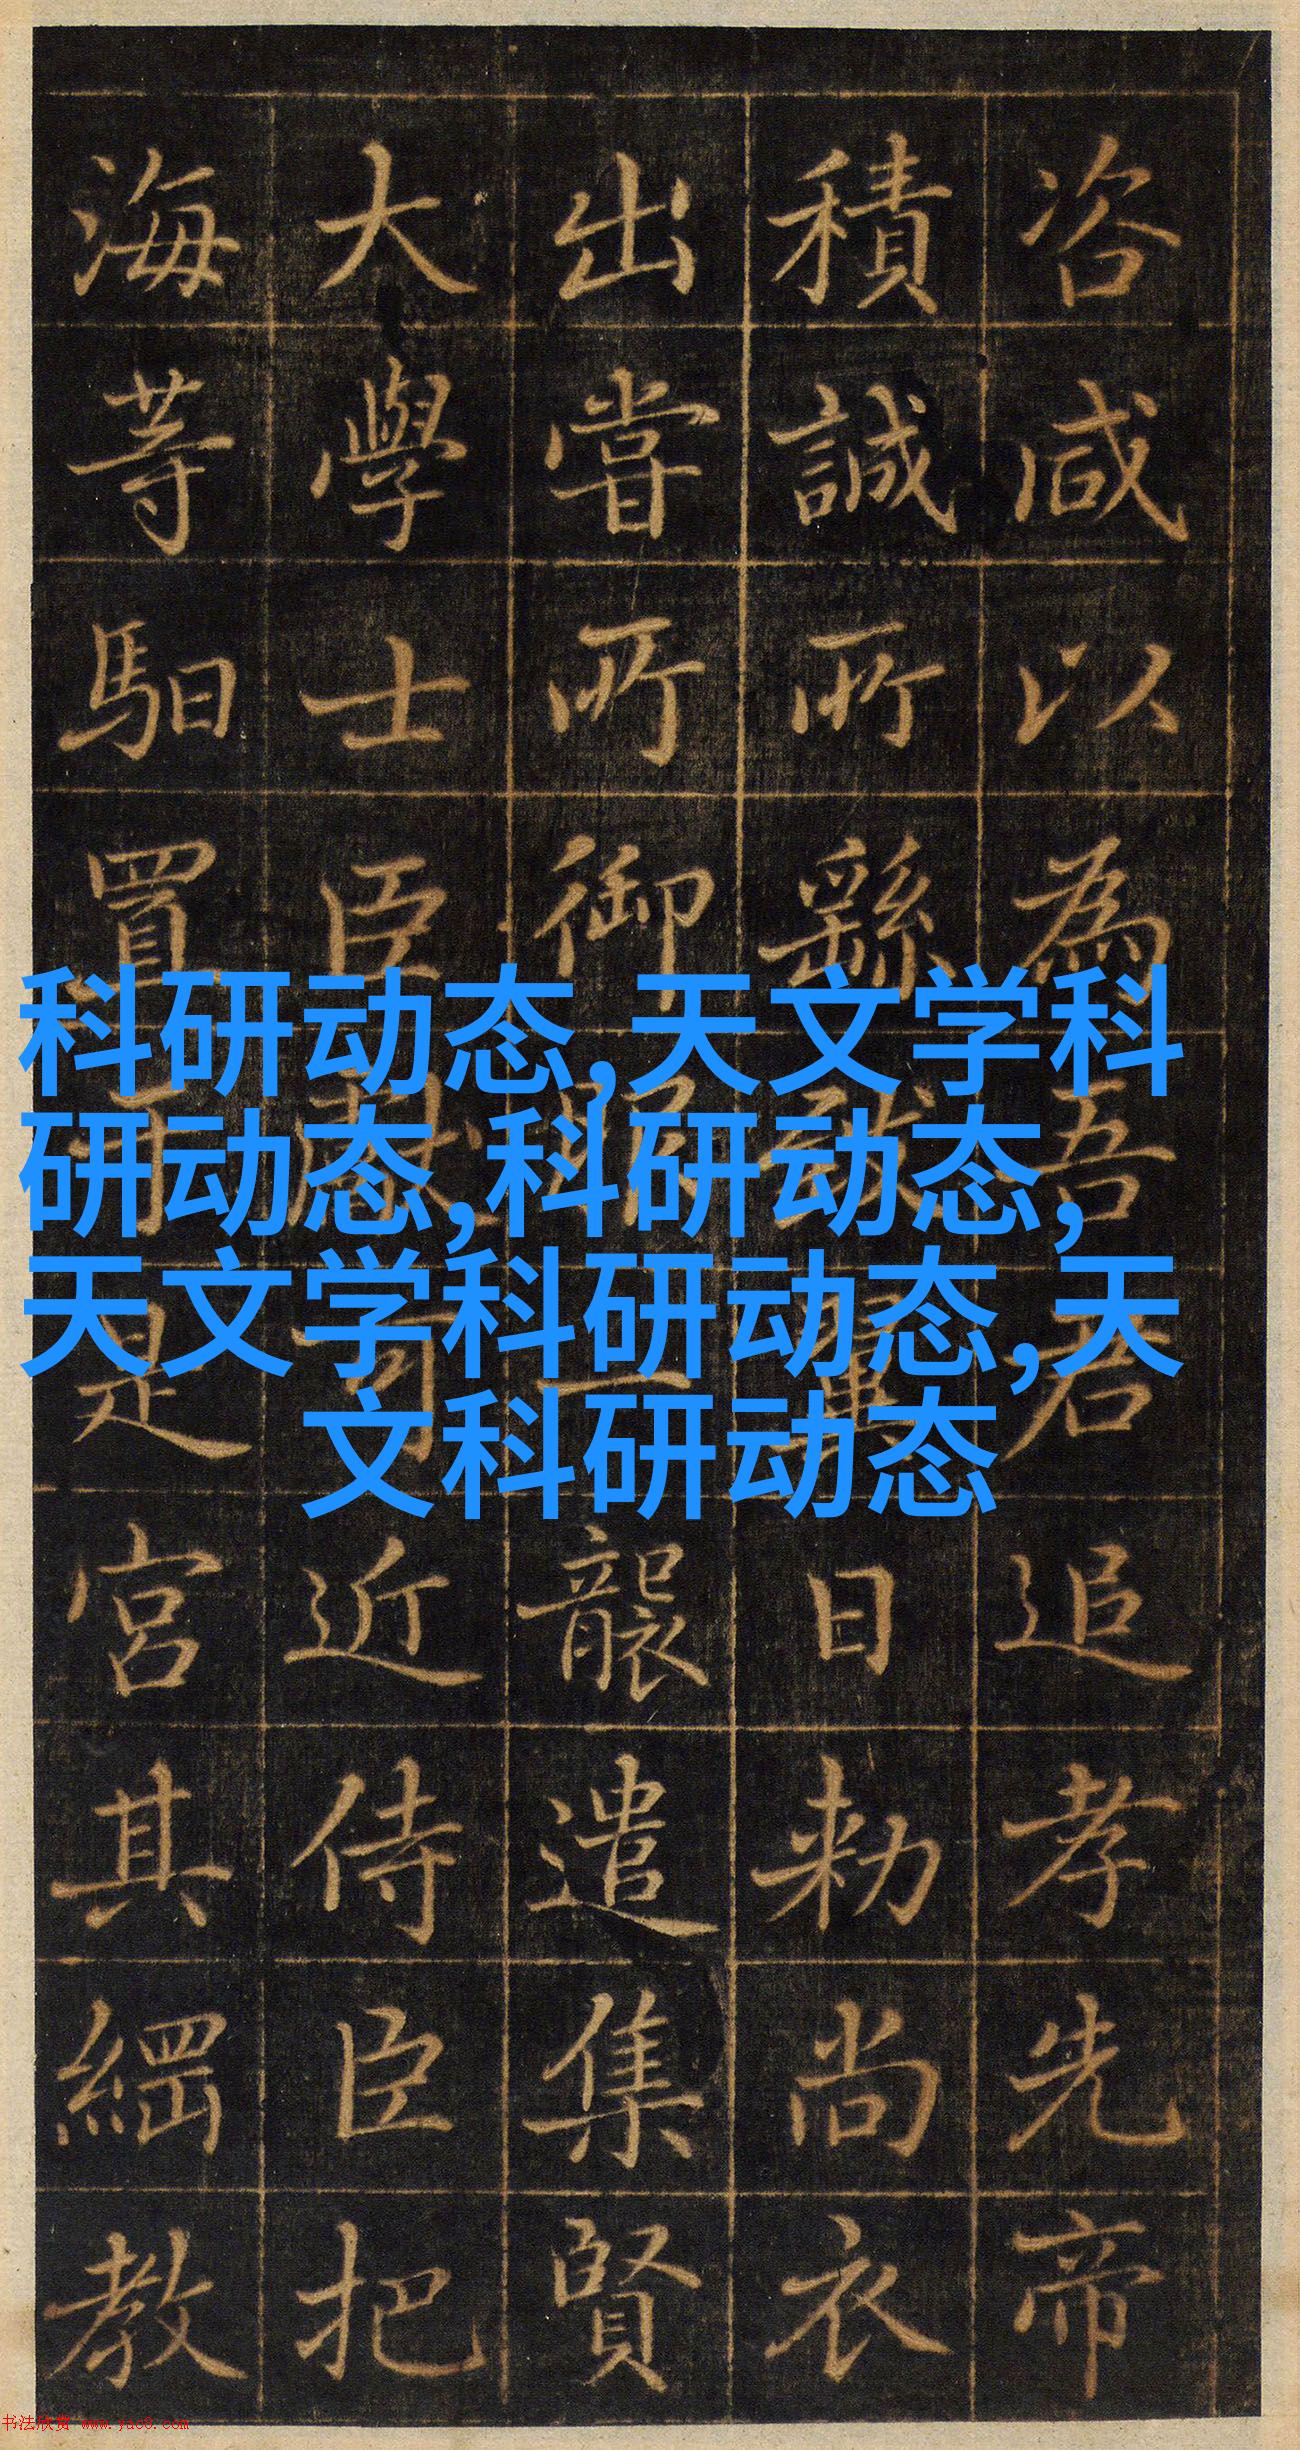 咨咸以為吾君追孝先帝
積誠所繇致翼日勑尚衣
出嘗所御服一襲遣集賢
大學士臣司近侍臣把
海等馹置于是宮其綱教
科研动态,天文学科
研动态,科研动态,
天文学科研动态,天
文科研动态
书法欣赏 www.yac8.com